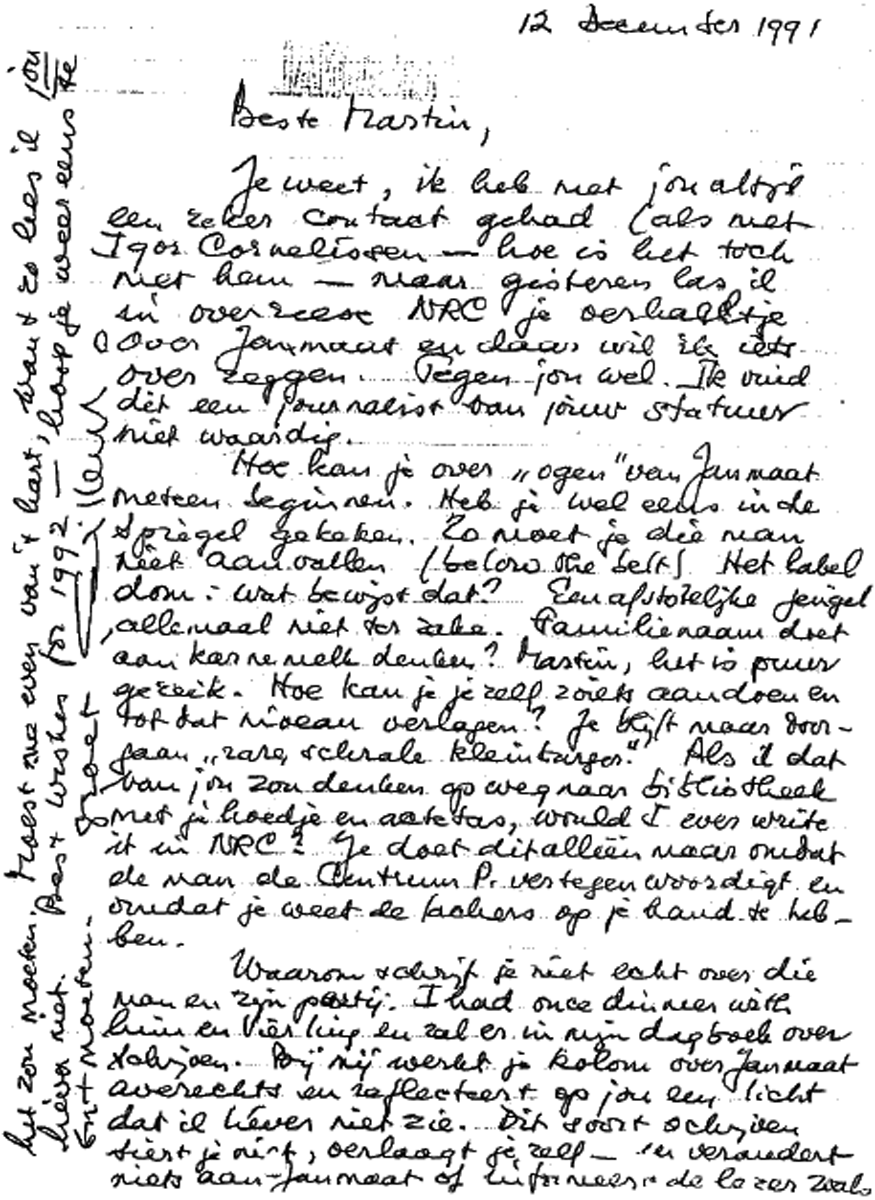 12 December 1991
Beste Martin,
Je weet, ik heb met jou altijd
een zeker contact gehad (als met
Igor Cornelissen — hoe is het toch
met hem — maar gisteren las ik
in overzeese NRC je verhaaltje
over Janmaat en daar wil ik iets
over zeggen. Tegen jou wel. Ik vind
dit een journalist van jouw statuur
niet waardig.
Hoe kan je over „ogen" van Janmaat
meteen beginnen. Heb je wel eens in de
spiegel gekeken. Zo moet je die man
niet aanvallen (below the belt) Het label
dom: wat bewijst dat? Een afstotelijke jengel
, allemaal niet ter zake. Familienaam doet
aan karnemelk denken? Martin, het is puur
gezeik. Hoe kan je jezelf zoiets aandoen en
tot dat niveau verlagen? Je blijft maar door-
gaan „rare, schrale kleinburger." Als ik dat
van jou zou denken op weg naar bibliotheek
met je hoedje en aktetas, would I ever write
it in NRC? Je doet dit alléén maar omdat
de man de Centrum P. vertegenwoordigt en
omdat je weet de lachers op je hand te heb-
ben.
Waarom schrijf je niet echt over die
man en zijn partij. I had once dinner with
him en Vierling en zal er in mijn dagboek over
schrijven. Bij mij werkt je kolom over Janmaat
averechts en reflecteert op jou een licht
dat ik liever niet zie. Dit soort schrijven
siert je niet, verlaagt je zelf — en verandert
niets aan Janmaat of informeert de lezer zoals
het zou moeten. Moest me even van 't hart, want zo lees ik jou
liever niet. Best wishes for 1992 — hoop je weer eens te
ontmoeten. Groet
Willem